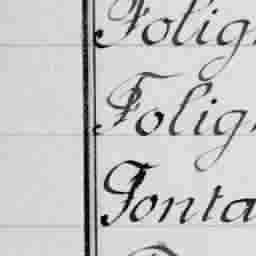 Folig
Folig
Fonta